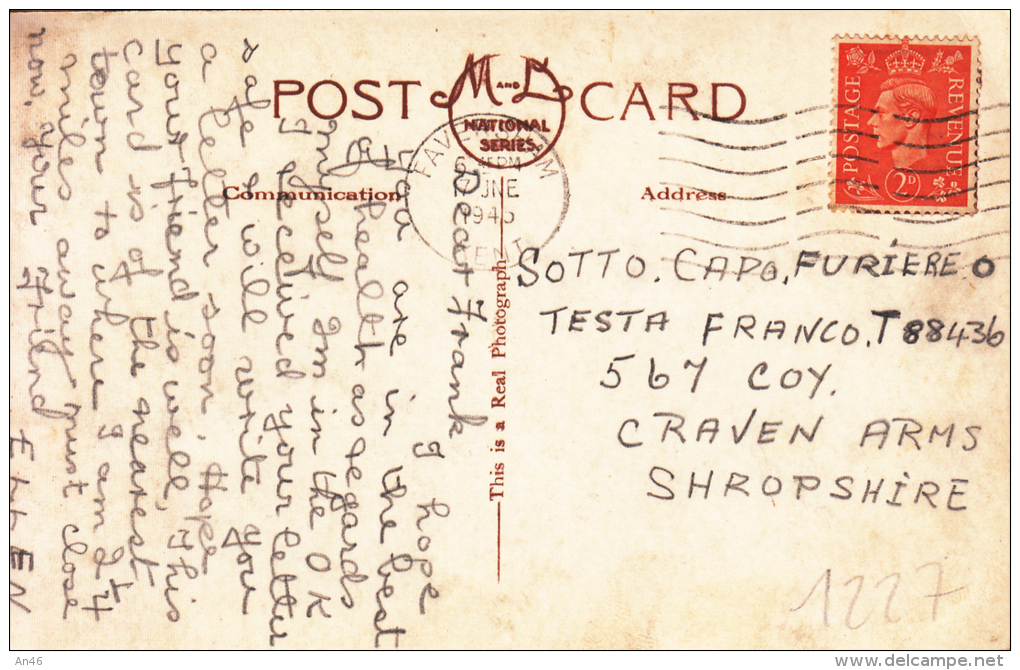 POST CARD
M AND L
NATIONAL
SERIES.
Communication
Address
This is a Real Photograph
POSTAGE REVENUE
2D
FAVERSHAM
JNE
1945
KENT
Dear Frank
I hope
you are in the best
of health as regards
myself Im in the OK
I recived your letter
safe I will write you
a letter soon, Hope
your friend is well, this
card is of the nearest
town to where I am 2 1/4
miles away, must close
now, your Frilnd
ELLEN
SOTTO. CAPO. FURIERE. O
TESTA FRANCO. T 88436
567 COY.
CRAVEN ARMS
SHROPSHIRE
1227
An46
delcampe.net